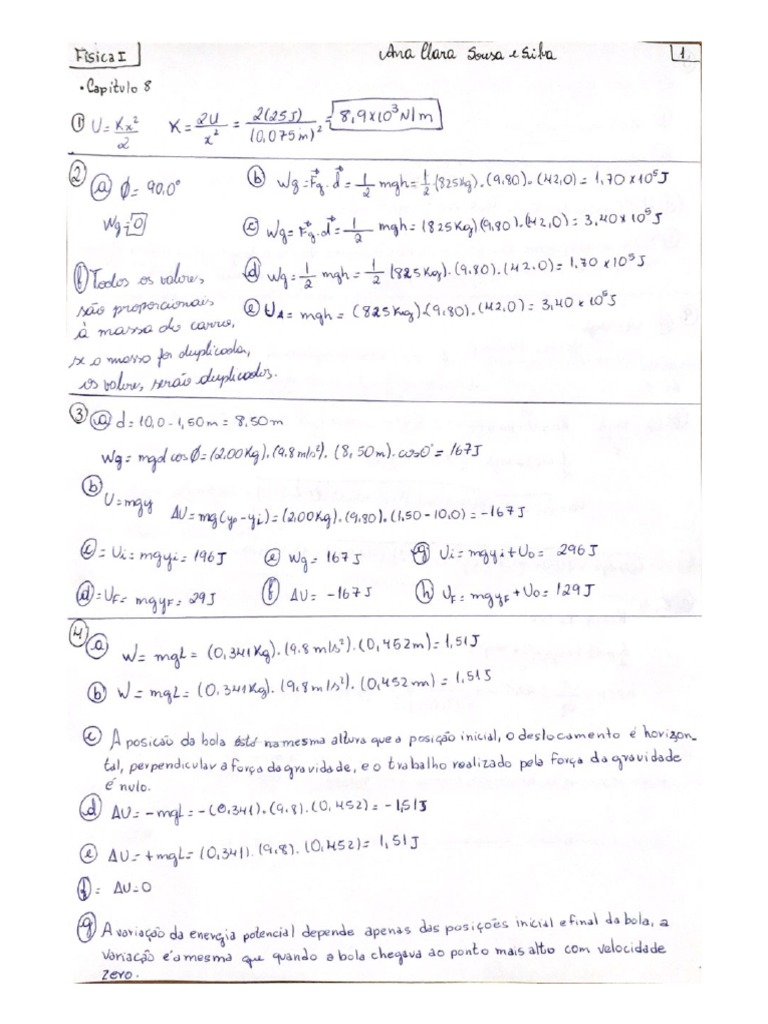 Física I
Ana Clara Sousa e Silva
1
• Capítulo 8
① U = Kx²/2 K = 2U/x² = 2(25J)/(0,075m)² = 8,9×10³ N/m
② ⓐ Ø = 90.0°
Wg = 0
ⓑ Wg = F⃗g . d⃗ = 1/2 mgh = 1/2 (825Kg).(9,80).(42,0) = 1,70 × 10⁵ J
ⓒ Wg = F⃗g . d⃗ = 1/2 mgh = (825Kg)(9,80).(42,0) = 3,40 × 10⁵ J
ⓓ Wg = 1/2 mgh = 1/2 (825Kg).(9.80).(42.0) = 1,70 × 10⁵ J
ⓔ UA = mgh = (825Kg).(9,80).(42,0) = 3,40 × 10⁵
ⓕ Todos os valores,
são proporcionais
à massa do carro,
se a massa for duplicada,
os valores, serão duplicados.
③ ⓐ d = 10,0 - 1,50m = 8,50m
Wg = mgd cos Ø = (2,00Kg).(9.8m/s²).(8,50m).cos0° = 167J
ⓑ U = mgy ΔU = mg(yF - yi) = (2,00Kg).(9,80).(1,50 - 10,0) = -167J
ⓒ = Ui = mgyi = 196J ⓔ Wg = 167J ⓖ Ui = mgyi + U0 = 296J
ⓓ = UF = mgyF = 29J ⓕ ΔU = -167J ⓗ UF = mgyF + U0 = 129J
④ ⓐ W = mgL = (0,341Kg).(9.8m/s²).(0,452m) = 1,51J
ⓑ W = mgL = (0,341Kg).(9.8m/s²).(0,452m) = 1,51J
ⓒ A posicão da bola está na mesma altura que a posição inicial, o deslocamento é horizon_
tal, perpendicular a força da gravidade, e o trabalho realizado pela força da gravidade
é nulo.
ⓓ ΔU = -mgL = -(0,341).(9.8).(0,452) = -1,51J
ⓔ ΔU = +mgL = (0,341).(9.8).(0,452) = 1,51J
ⓕ = ΔU = 0
ⓖ A variação da energia potencial depende apenas das posições inicial e final da bola, a
variação é a mesma que quando a bola chegava ao ponto mais alto com velocidade
zero.